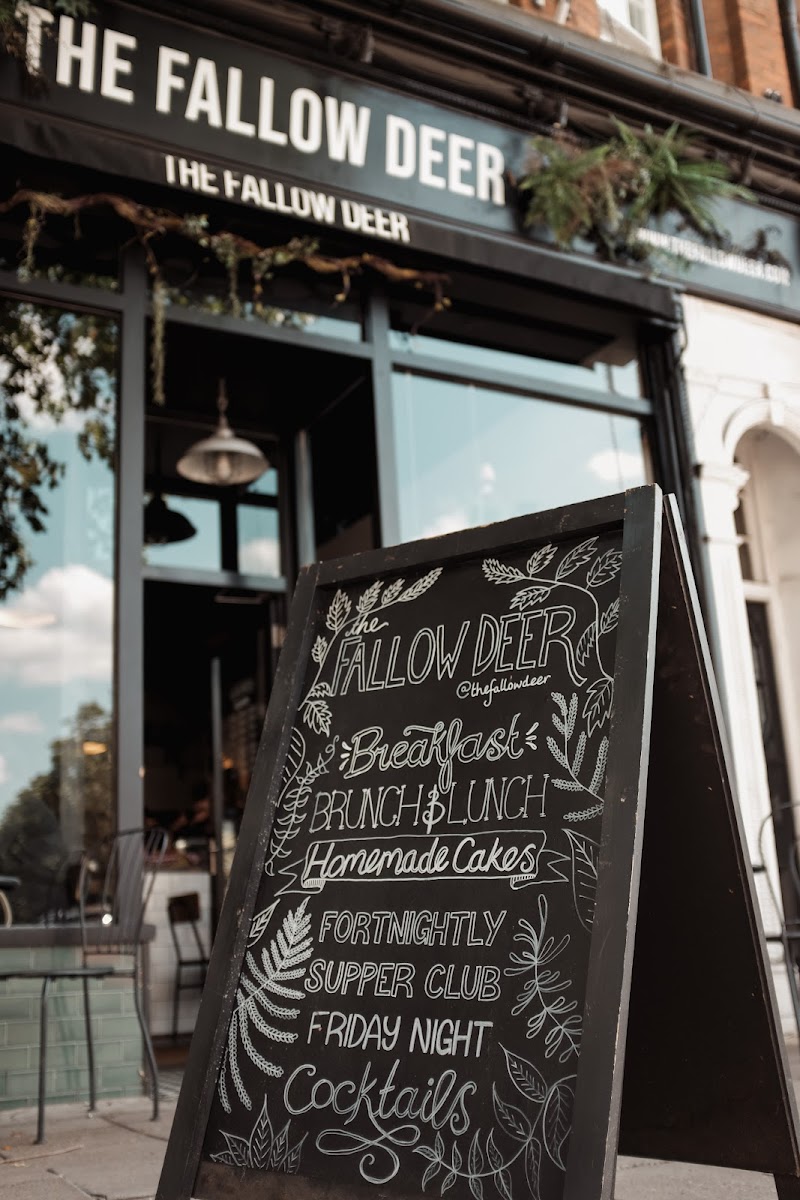 THE FALLOW DEER
THE FALLOW DEER
WWW.THEFALLOWDEER.COM
the
FALLOW DEER
@thefallowdeer
Breakfast
BRUNCH & LUNCH
Homemade Cakes
FORTNIGHTLY
SUPPER CLUB
FRIDAY NIGHT
Cocktails